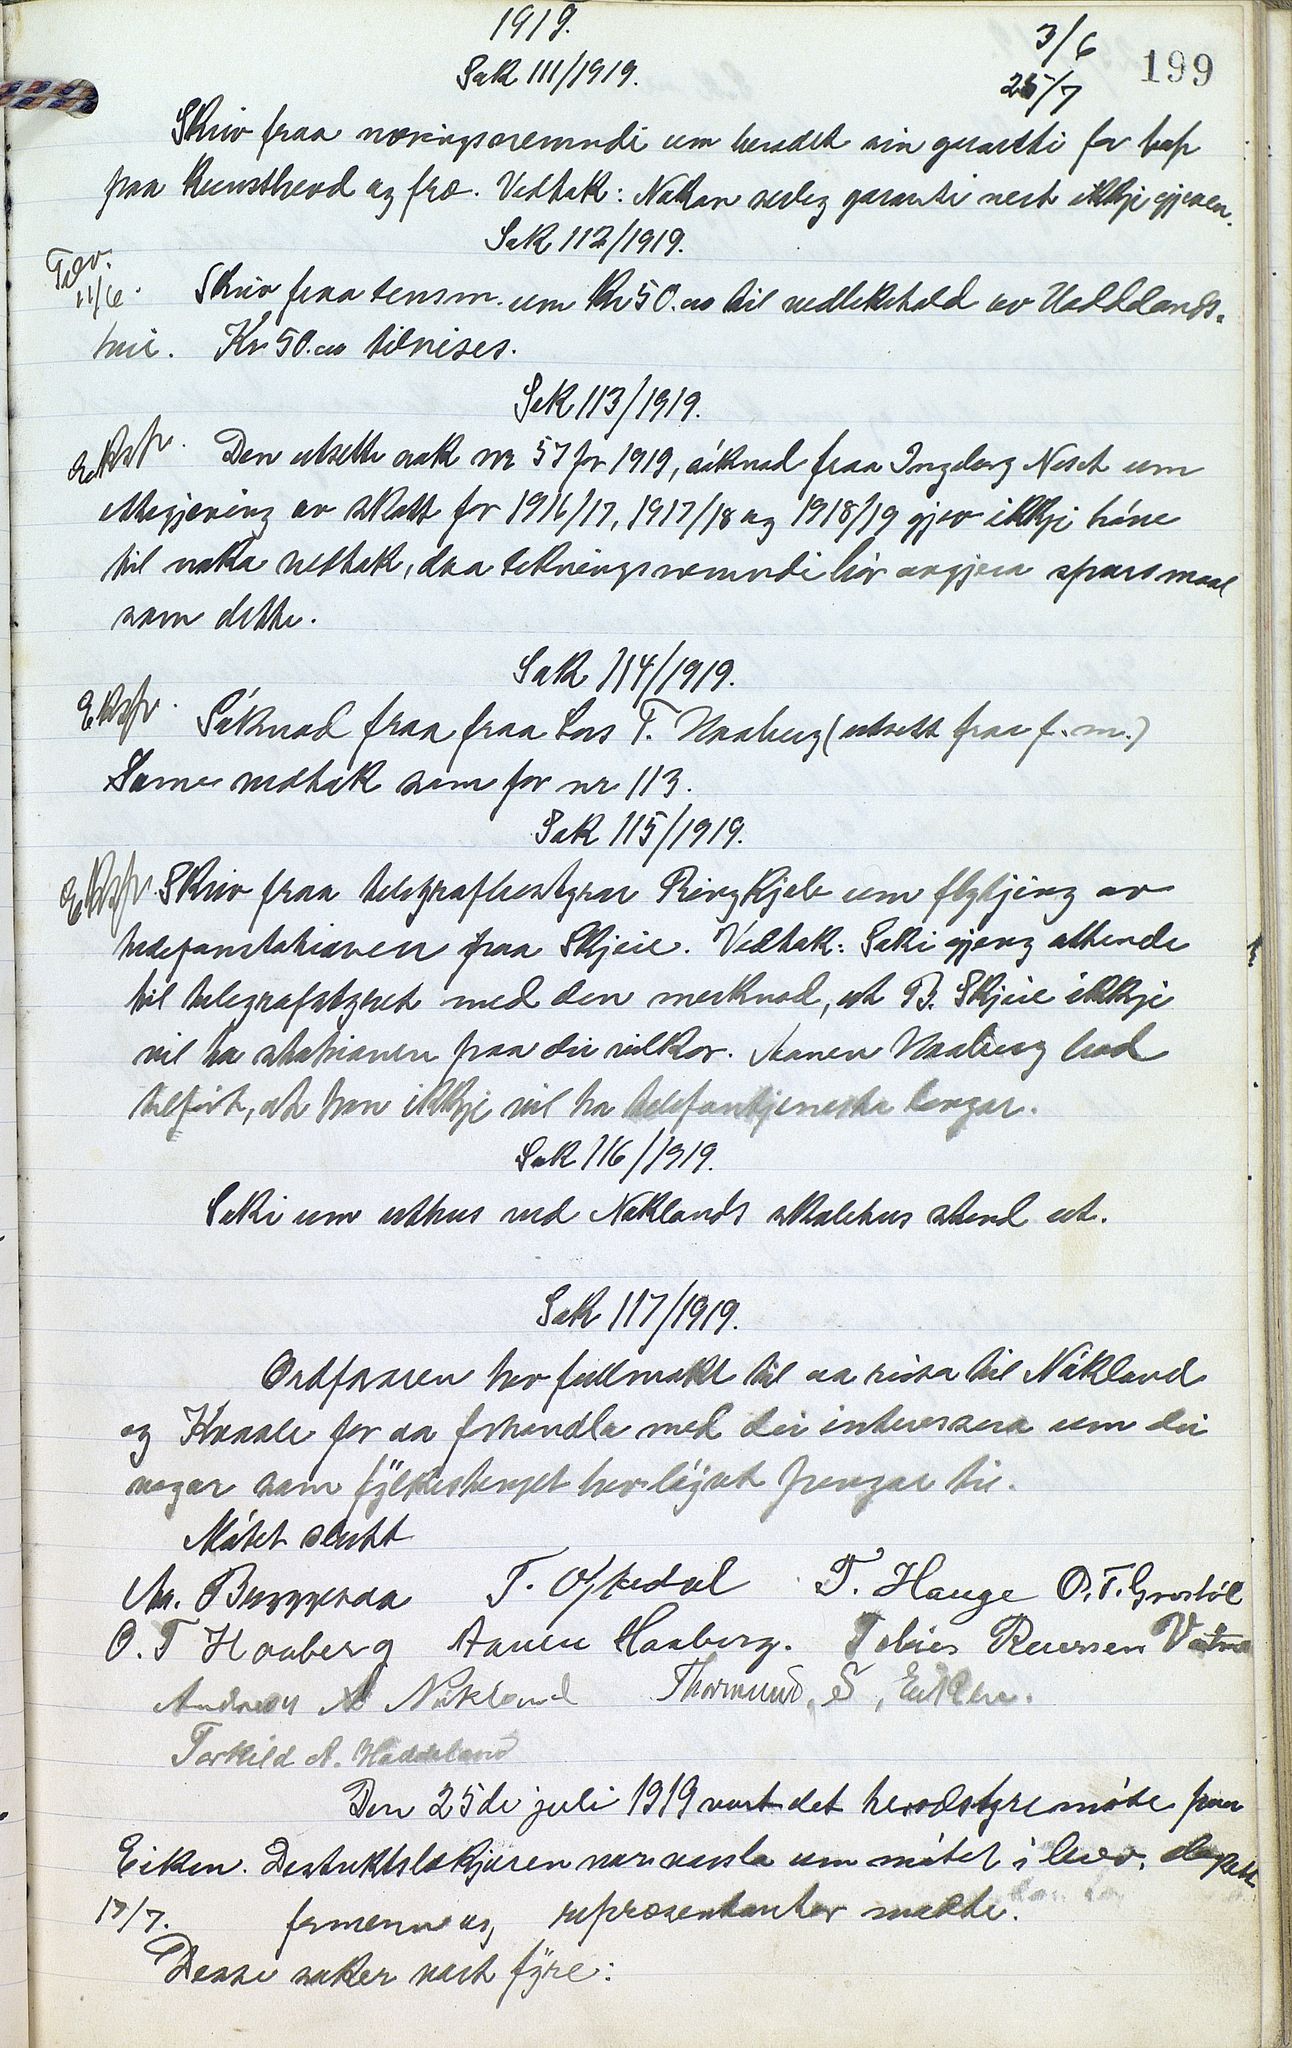 1919.
3/6
199
Sak 111/1919.
25/7
Skriv fraa næringsnemndi um heradet sin garanti for tap
paa kunsthevd og frø. Vedtak: Nokon serleg garanti vert ikkje gjeven.
Sak 112/1919.
11/6.
Skriv fraa lensm. um Kr 50.00 til vedlikehald av Haddelands-
hei. Kr 50.00 tilvises.
Sak 113/1919.
Ekspr.
Den utsette sak nr 57 for 1919, söknad fraa Ingeborg Neset um
ettergjeving av skatt for 1916/17, 1917/18 og 1918/19 gjev ikkje höve
til noko vedtak, daa likningsnemndi bör avgjera spursmaal
som dette.
Sak 114/1919.
Ekspr.
Söknad fraa fraa Lars T. Haaberg (utsett fraa f.m.)
Same vedtak som for nr 113.
Sak 115/1919.
Ekspr.
Skriv fraa telegrafbestyrar Ringkjøb um flytjing av
telefonstationen fraa Skjeie. Vedtak: Saki gjeng attende
til telegrafstyret med den merknad, at B. Skjeie ikkje
vil ha stationen paa dei vilkor. Aanen Haaberg hev
tilfört, at han ikkje vil ha telefontjenesta lengar.
Sak 116/1919.
Saki um uthus ved Naklands skulehus stend ut.
Sak 117/1919.
Ordföraren hev fullmakt til aa reisa til Nökland
og Kvaale for aa forhandla med dei interessera um dei
vegar som fylkestinget hev löyvt pengar til.
Mötet slutt
Aa. Buggeraa T. Öysædal T. Hauge O. T. Grostöl
O. T Haaberg Aanen Haaberg. Tobias Reiersen Vatne
Andreas A Nökland Thormund. S, Eiken.
Torkild A. Haddeland
Den 25de juli 1919 vart det heradstyremöte paa
Eiken. Distriktslækjaren var varsla um mötet i brev, dagsett
17/7. formenn og representanter mötte.
Desse saker vart fyre: